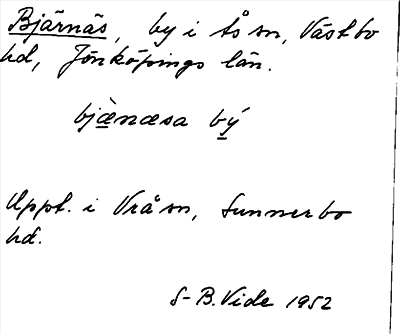 Bjärnäs, by i Ås sn, Västbo
hd, Jönköpings län.
bjæ̀næsa bý
Uppt. i Vrå sn, Sunnerbo
hd.
S-B. Vide 1952